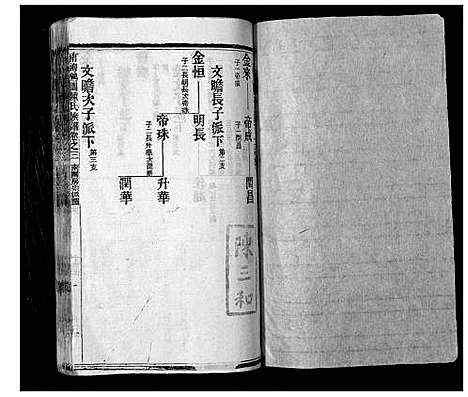 金來 帝成 閏昌
子一帝成 子一閏昌
文瞻長子派下 第二支
金恒 明長
子二明長次帝珠
帝珠 升華
子二長升華次潤華
潤華
文瞻次子派下 第三支
陳氏族譜卷之三
陳三和